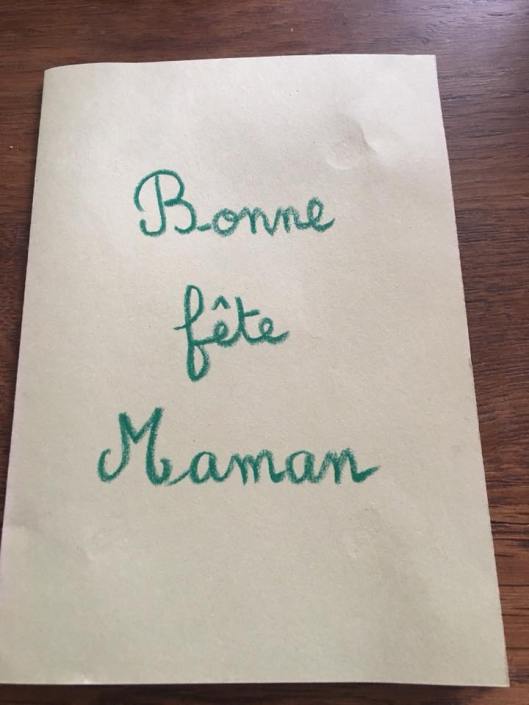 Bonne
fête
Maman